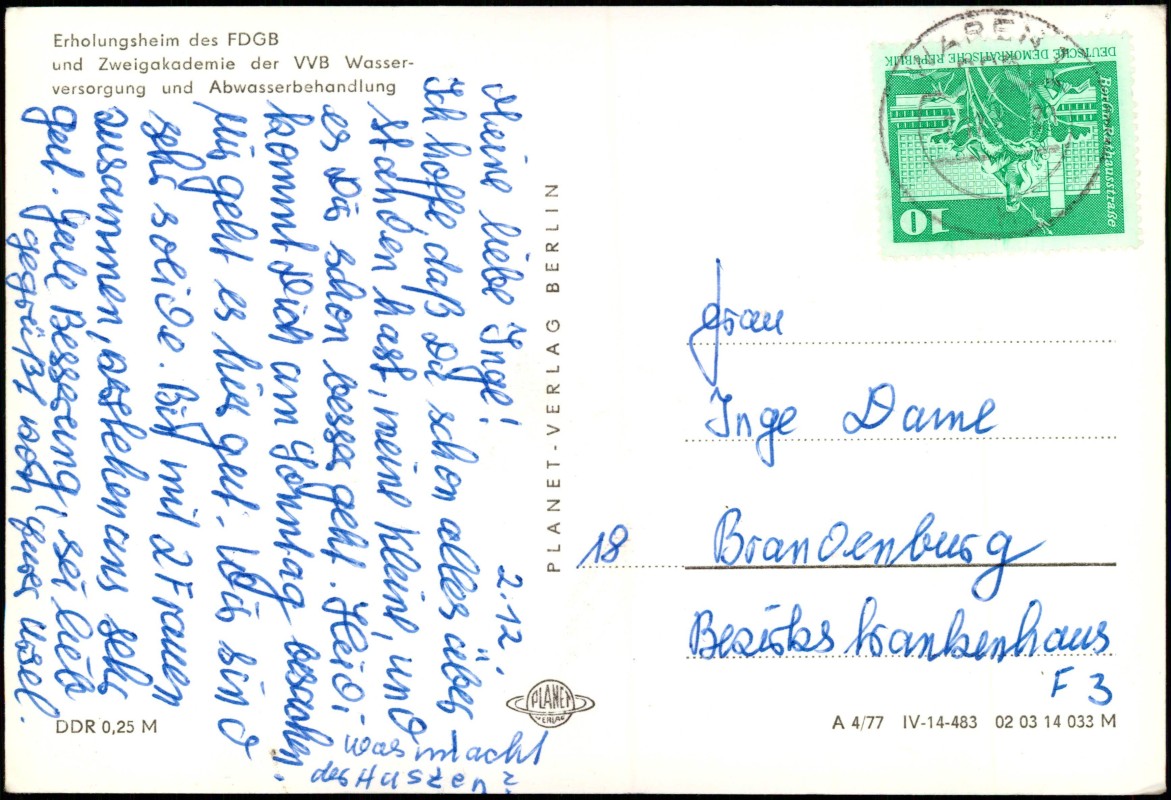 Erholungsheim des FDGB
und Zweigakademie der VVB Wasser-
versorgung und Abwasserbehandlung
Meine liebe Inge! 2.12.
Ich hoffe, daß Du schon alles über
standen hast, meine Kleine, und
es Dir schon besser geht. Heidi
kommt Dich am Sonntag besuchen.
Mir geht es hier gut. Wir sind
sehr solide. Bin mit 2 Frauen
zusammen, verstehen uns sehr
gut. Gute Besserung, sei lieb
gegrüßt von Eurer Ursel.
was macht
der Husten?
DDR 0,25 M
PLANET-VERLAG BERLIN
PLANET
VERLAG
WAREN
DEUTSCHE DEMOKRATISCHE REPUBLIK
Berlin, Rathausstraße
10
Frau
Inge Dame
18 Brandenburg
Bezirkskrankenhaus
F 3
A 4/77 IV-14-483 02 03 14 033 M